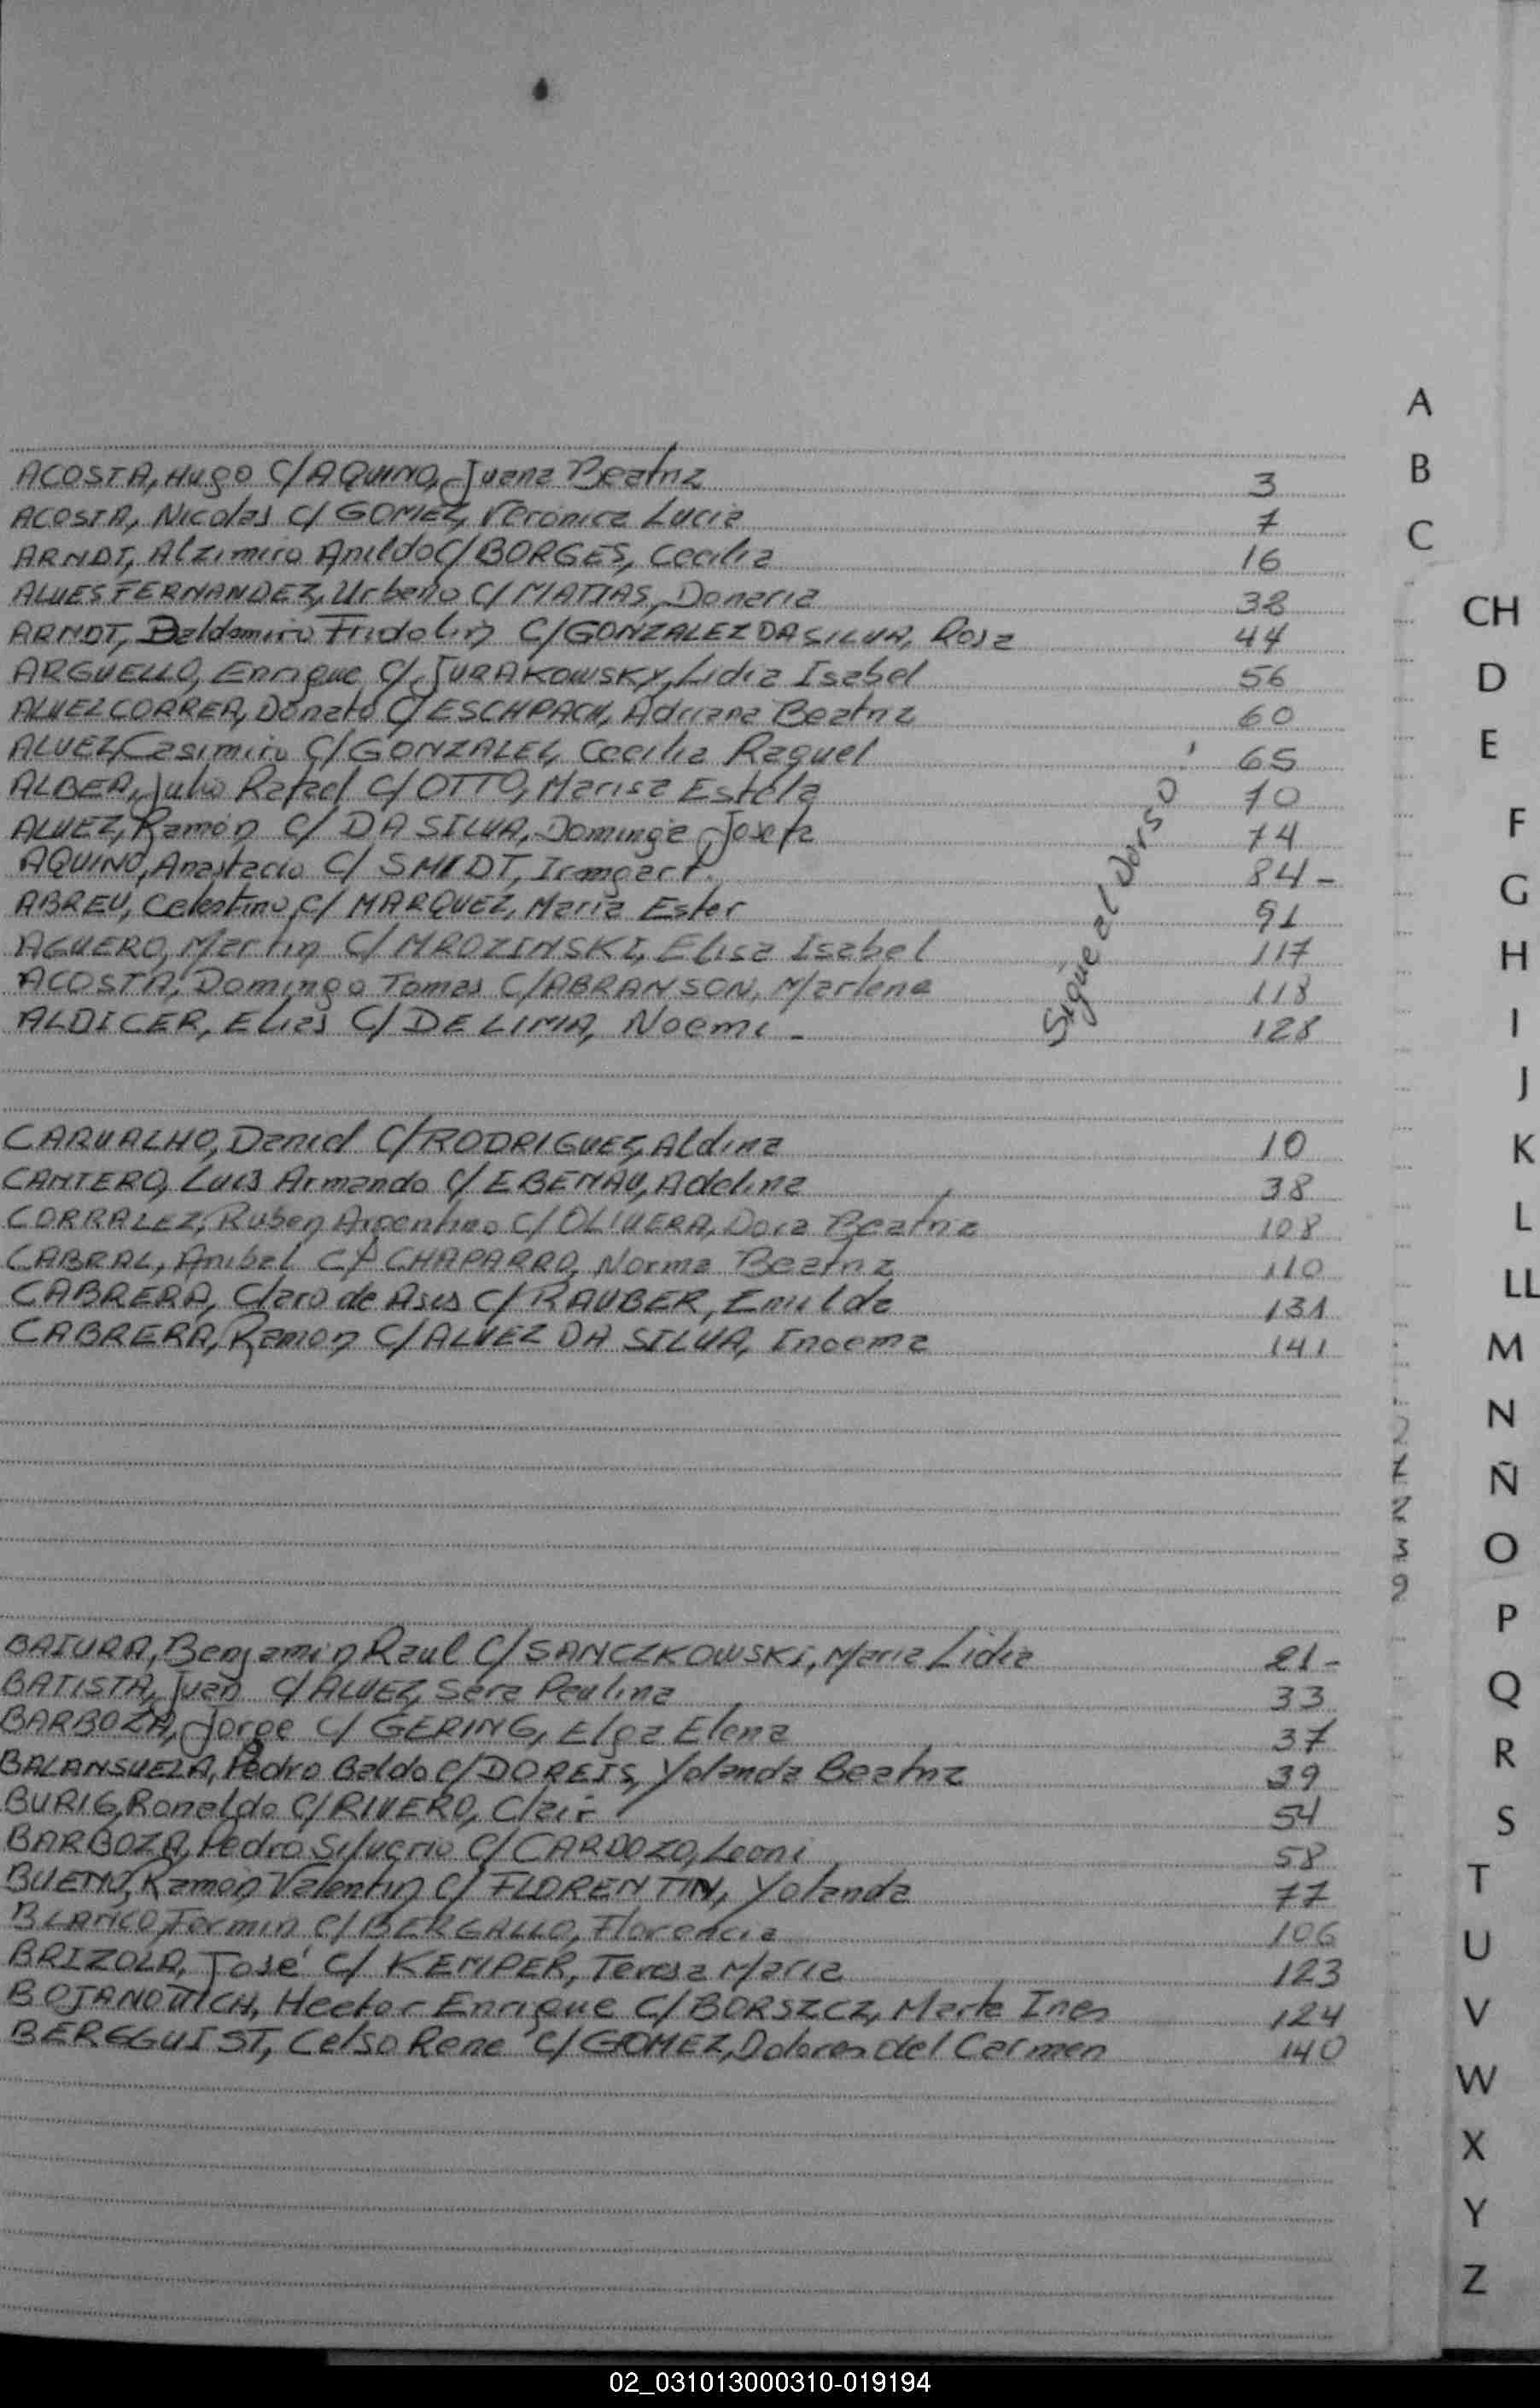 ACOSTA, Hugo C/AQUINO, Juana Beatriz 3
ACOSTA, Nicolas C/ GOMEZ, Verónica Lucia 7
ARNDT, Alzimiro Anildo C/BORGES, Cecilia 16
ALVES FERNANDEZ, Urbano C/ MATIAS, Donaria 38
ARNDT, Baldomiro Fridolin C/GONZALEZ DA SILVA, Rosa 44
ARGUELLO, Enrique C/ JURAKOWSKY, Lidia Isabel 56
ALVEZ CORREA, Donato C/ ESCHPACH, Adriana Beatriz 60
ALVEZ, Casimiro C/GONZALEZ, Cecilia Raquel 65
ALBEA, Julio Rafael C/ OTTO, Marisa Estela 70
ALVEZ, Ramón C/ DA SILVA, Dominga Josefa 74
AQUINO, Anastacio C/ SMIDT, Irangart. 84-
ABREU, Celestino, C/ MARQUEZ, Maria Ester 91
AGUERO, Martin C/ MROZINSKI, Elisa Isabel 117
ACOSTA, Domingo Tomas C/ABRANSON, Marlene 118
ALDICER, Elias C/ DE LIMA, Noemi - 128
Sigue al Dorso
CARVALHO, Daniel C/RODRIGUEZ, Aldina 10
CANTERO, Luis Armando C/ EBENAU, Adelina 38
CORRALEZ, Ruben Argentino C/ OLIVERA, Dora Beatriz 108
CABRAL, Anibal C/ CHAPARRO, Norma Beatriz 110
CABRERA, Claro de Asis C/ RAUBER, Emilda 131
CABRERA, Ramon C/ ALVEZ DA SILVA, Inoema 141
BATURA, Benjamin Raul C/ SANCZKOWSKI, Maria Lidia 21-
BATISTA, Juan C/ ALVEZ, Sara Paulina 33
BARBOZA, Jorge C/ GERING, Elga Elena 37
BALANSUEZA, Pedro Baldo C/ DOREIS, Yolanda Beatriz 39
BURIG, Ronaldo C/ RIVERO, Clair 54
BARBOZA, Pedro Silverio C/ CARDOZO, Leoni 58
BUENO, Ramón Valentin C/ FLORENTIN, Yolanda 77
BLANCO, Fermin C/ BERGALLO, Florencia 106
BRIZOLA, José C/ KEMPER, Teresa Maria 123
BOJANOVICH, Hector Enrique C/ BORSZCZ, Marta Ines 124
BEREGUIST, Celso Rene C/ GOMEZ, Dolores del Carmen 140
A
B
C
CH
D
E
F
G
H
I
J
K
L
LL
M
N
Ñ
O
P
Q
R
S
T
U
V
W
X
Y
Z
2
7
2
3
9
02_031013000310-019194